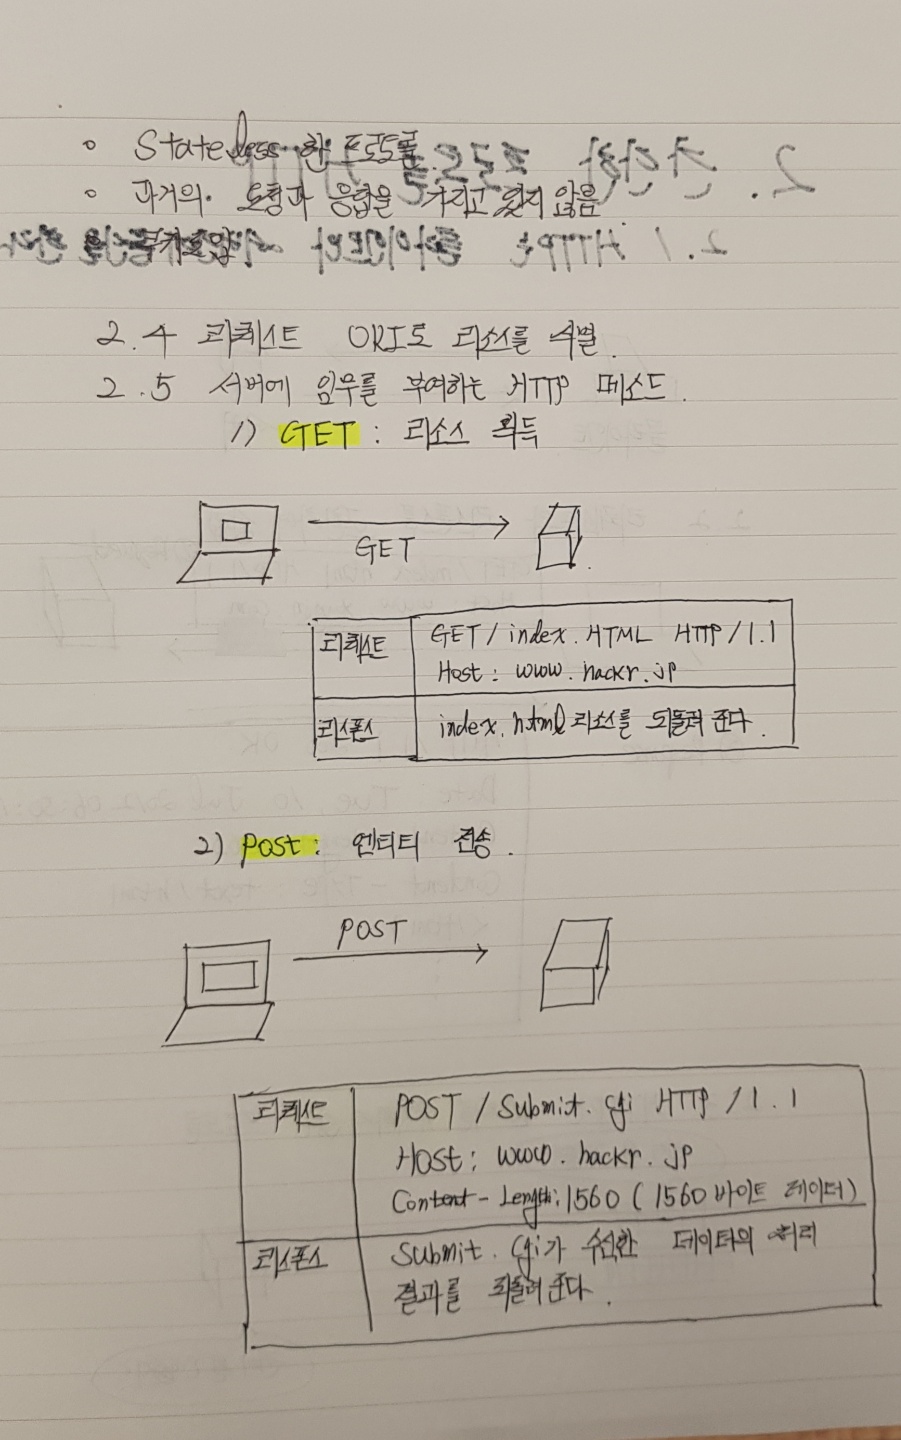 Stateless한 프로토콜.
과거의 요청과 응답을 가지고 있지 않음
2.4 리퀘스트 URI로 리소스를 식별.
2.5 서버에 임무를 부여하는 HTTP 메소드.
1) GET : 리소스 획득
GET
리퀘스트 GET / index.HTML HTTP / 1.1
Host : www.hackr.jp
리스폰스 index.html 리소스를 되돌려 준다.
2) POST : 엔티티 전송.
POST
리퀘스트 POST / Submit.cgi HTTP / 1.1
Host : www.hackr.jp
Content-Length: 1560 ( 1560 바이트 데이터)
리스폰스 Submit.cgi가 수신한 데이터의 처리
결과를 되돌려 준다.